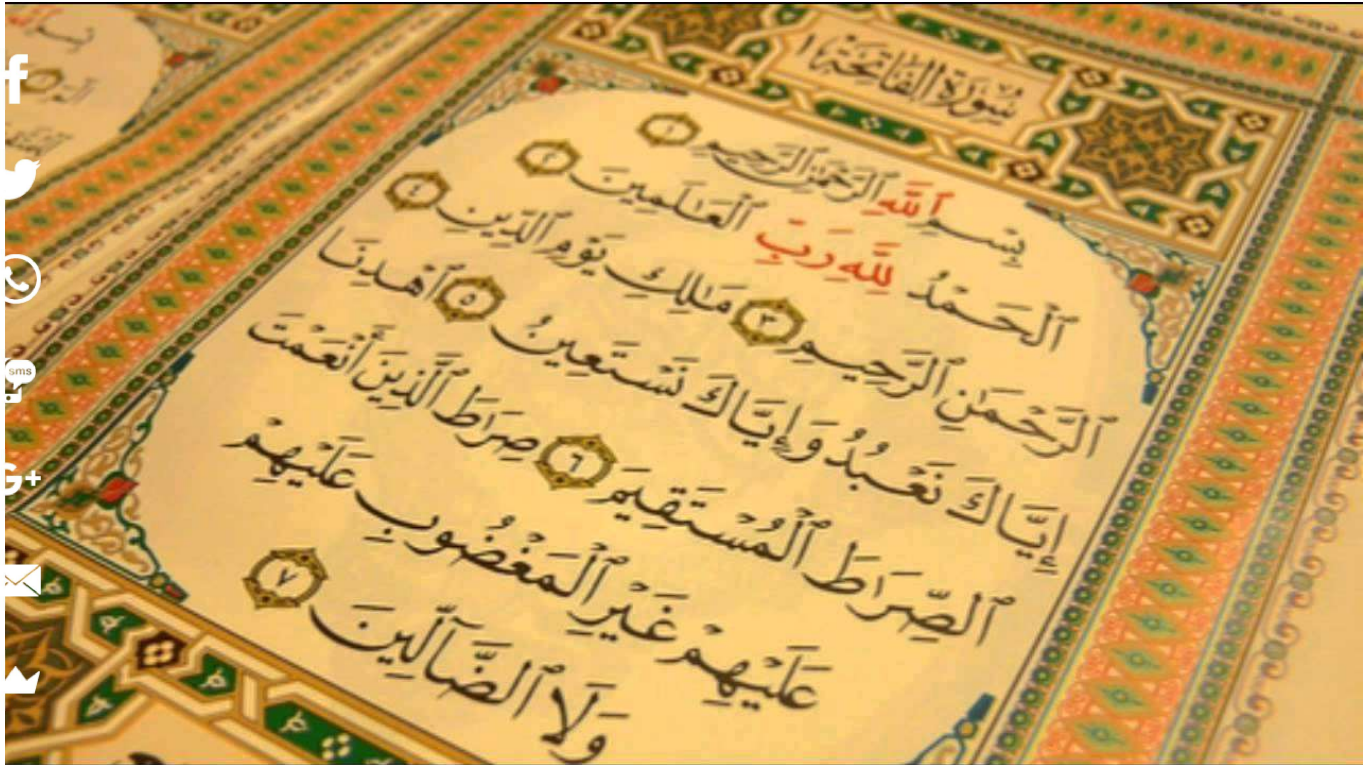 سُورَةُ الفَاتِحَةِ ١
بِسْمِ ٱللَّهِ ٱلرَّحْمَٰنِ ٱلرَّحِيمِ ١
ٱلْحَمْدُ لِلَّهِ رَبِّ ٱلْعَٰلَمِينَ ٢
ٱلرَّحْمَٰنِ ٱلرَّحِيمِ ٣ مَٰلِكِ يَوْمِ ٱلدِّينِ ٤
إِيَّاكَ نَعْبُدُ وَإِيَّاكَ نَسْتَعِينُ ٥ ٱهْدِنَا
ٱلصِّرَٰطَ ٱلْمُسْتَقِيمَ ٦ صِرَٰطَ ٱلَّذِينَ أَنْعَمْتَ
عَلَيْهِمْ غَيْرِ ٱلْمَغْضُوبِ عَلَيْهِمْ
وَلَا ٱلضَّآلِّينَ ٧
f
sms
G+